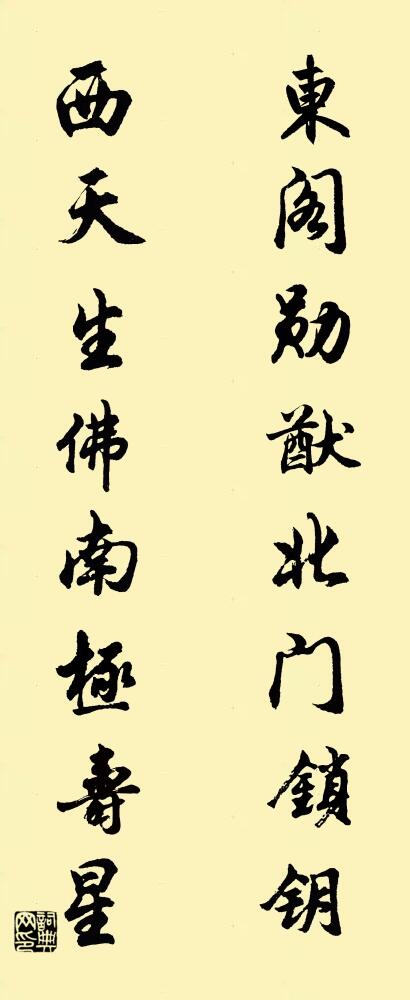 東阁勋猷北门鎖钥
西天生佛南極壽星
詞典网印